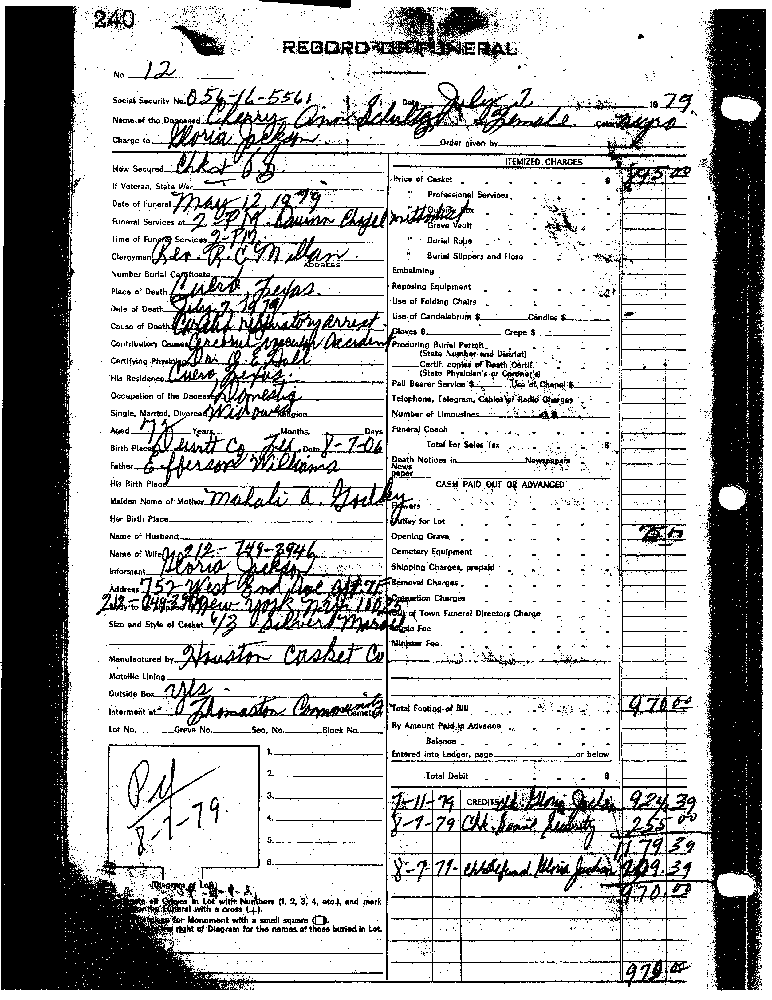 240
RECORD OF FUNERAL
No. 12
Social Security No. 056-16-5561 Date July 7 1979
Name of the Deceased Cherry Ann Schultz Female negro
Charge to Gloria Jackson Order given by
How Secured
If Veteran, State War
Date of Funeral May 12 1979
Funeral Services at 2 PM Chapel Methodist
Time of Funeral Services 2 PM
Clergyman Rev. R. C. Millan
ADDRESS
Number Burial Certificate
Place of Death Cuero Texas
Date of Death July 7 1979
Cause of Death respiratory arrest
Contributory Causes Cerebral vascular accident
Certifying Physician Dr.
His Residence Cuero Texas
Occupation of the Deceased Domestic
Single, Married, Divorced Widower Religion
Aged 72 Years Months Days
Birth Place Dewitt Co Tex Date 8-7-06
Father Efferson Williams
His Birth Place
Maiden Name of Mother Mahali A.
Her Birth Place
Name of Husband
Name of Wife 212-749-3946
Informant Gloria Jackson
Address 752 West End Ave
New York N.Y.
Size and Style of Casket 6/3 Silver
Manufactured by Houston Casket Co
Metallic Lining
Outside Box yes
Interment at Thomaston Community Cemetery
Lot No. Grave No. Sec. No. Block No.
1.
2.
3.
4.
5.
6.
Pd
8-7-79
Diagram of Lot
all Graves in Lot with Numbers (1, 2, 3, 4, etc.), and mark
Funeral with a cross (+).
for Monument with a small square (□).
right of Diagram for the names of those buried in Lot.
ITEMIZED CHARGES
Price of Casket $ 895.00
" Professional Services
Grave Vault
" Burial Robe
" Burial Slippers and Hose
Embalming
Reposing Equipment
Use of Folding Chairs
Use of Candelabrum $ Candles $
Gloves $ Crepe $
Procuring Burial Permit
(State Number and District)
Certif. copies of Death Certif.
(State Physician's or Coroner's)
Pall Bearer Service $ Use of Chapel $
Telephone, Telegram, Cables or Radio Charges
Number of Limousines
Funeral Coach
Total For Sales Tax $
Death Notices in Newspapers
News
paper
CASH PAID OUT OR ADVANCED
Flowers
Outlay for Lot
Opening Grave 75.00
Cemetery Equipment
Shipping Charges, prepaid
Removal Charges
Cremation Charges
Out of Town Funeral Directors Charge
Minister Fee
Total Footing of Bill 970.00
By Amount Paid in Advance
Balance
Entered into Ledger, page or below
Total Debit $
7-11-79 CREDITS Gloria Jackson 924.39
8-7-79 Chk. Social Security 255.00
1179.39
8-7-79 Refund Gloria Jackson 209.39
970.00
970.00